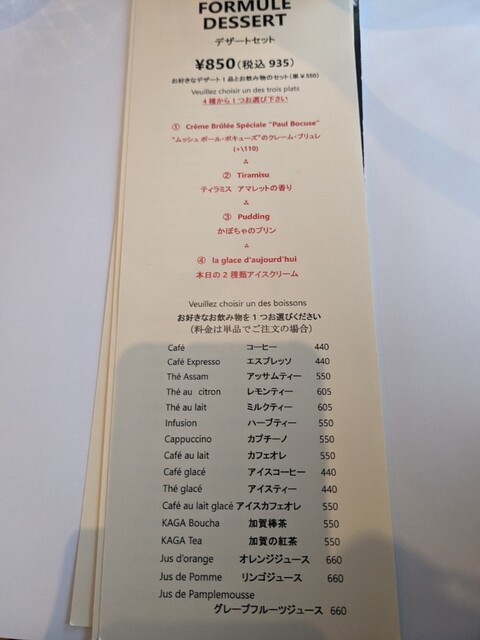 FORMULE
DESSERT
デザートセット
¥850(税込 935)
お好きなデザート1品とお飲み物のセット(単¥550)
Veuillez choisir un des trois plats
4種から1つお選び下さい
① Crème Brûlée Spéciale "Paul Bocuse"
"ムッシュ ポール・ボキューズ"のクレーム・ブリュレ
(+\110)
② Tiramisu
ティラミス アマレットの香り
③ Pudding
かぼちゃのプリン
④ la glace d'aujourd'hui
本日の2種類アイスクリーム
Veuillez choisir un des boissons
お好きなお飲み物を1つお選びください
(料金は単品でご注文の場合)
Café コーヒー 440
Café Expresso エスプレッソ 440
Thé Assam アッサムティー 550
Thé au citron レモンティー 605
Thé au lait ミルクティー 605
Infusion ハーブティー 550
Cappuccino カプチーノ 550
Café au lait カフェオレ 550
Café glacé アイスコーヒー 440
Thé glacé アイスティー 440
Café au lait glacé アイスカフェオレ 550
KAGA Boucha 加賀棒茶 550
KAGA Tea 加賀の紅茶 550
Jus d'orange オレンジジュース 660
Jus de Pomme リンゴジュース 660
Jus de Pamplemousse
グレープフルーツジュース 660